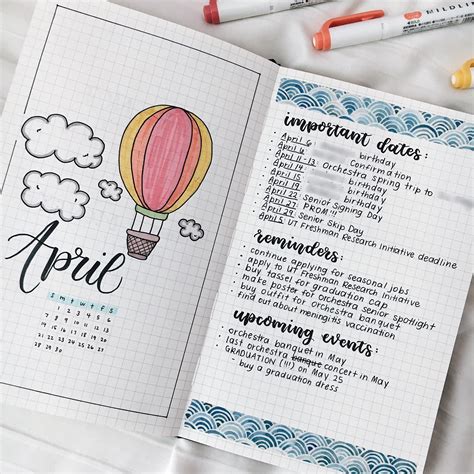 April
S M T W T F S
1 2 3 4 5 6
7 8 9 10 11 12 13
14 15 16 17 18 19 20
21 22 23 24 25 26 27
28 29 30
MILDLI
important dates:
· April 6: birthday
· April 6: Confirmation
· April 11-13: Orchestra spring trip to
· April 14: birthday
· April 15: birthday
· April 19: birthday
· April 22: Senior Signing Day
· April 27: PROM!!!
· April 29: Senior Skip Day
· April 5: UT Freshman Research Initiative deadline
reminders:
· continue applying for seasonal jobs
· apply to UT Freshman Research Initiative
· buy tassel for graduation cap
· make poster for orchestra senior spotlight
· buy outfit for orchestra banquet
· find out about meningitis vaccination
upcoming events:
· orchestra banquet in May
· last orchestra banque concert in May
· GRADUATION (!!!) on May 25
· buy a graduation dress